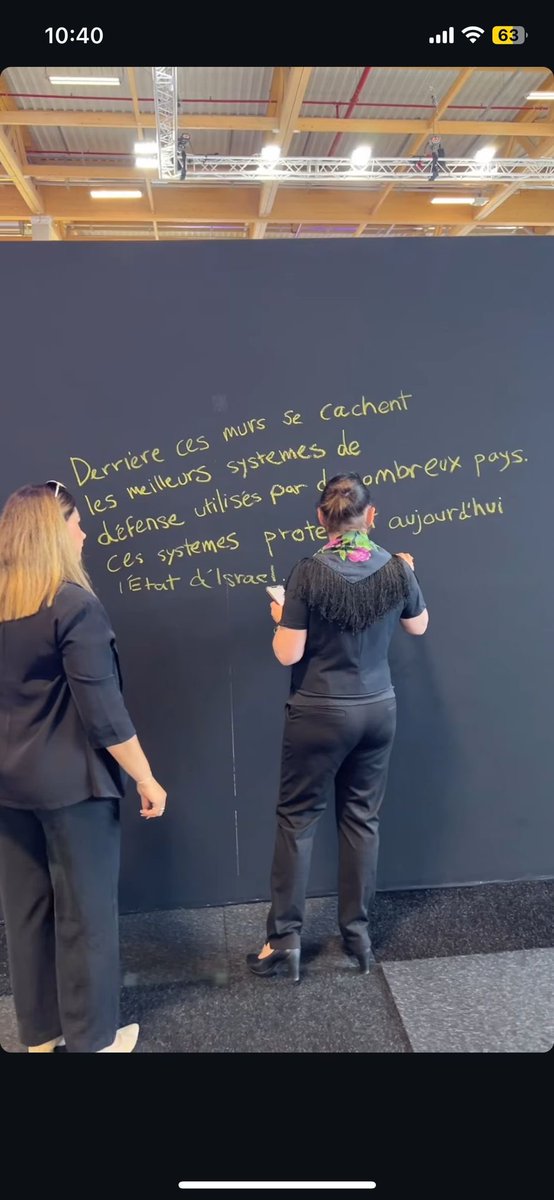 10:40
63
Derrière ces murs se cachent
les meilleurs systemes de
défense utilisés par de nombreux pays.
ces systemes aujourd'hui
l'Etat d'Israel.